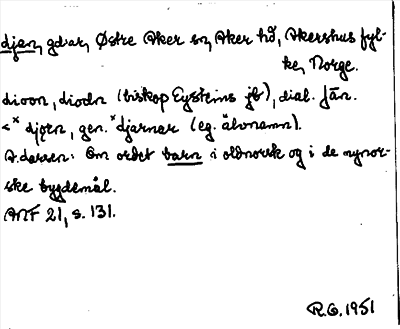 djøn, gdar, Østre Aker sn, Aker hd, Akershus fyl-
ke, Norge.
dioon, diodn (biskop Eysteins jb), dial. jän.
<* djǫrn, gen. *djarnar (eg. älvnamn).
A. Larsen: Om ordet barn i oldnorsk og i de nynor-
ske bygdemål.
ANF 21, s. 131.
R.O. 1951